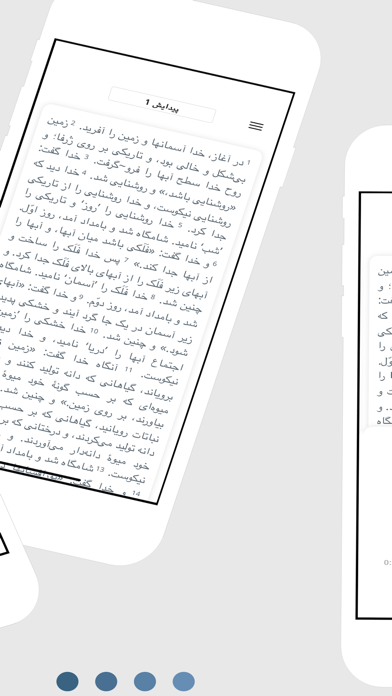 پیدایش 1
1 در آغاز، خدا آسمانها و زمین را آفرید. 2 زمین
بی‌شکل و خالی بود، و تاریکی بر روی ژرفا؛ و
روح خدا سطح آبها را فرو-گرفت. 3 خدا گفت:
«روشنایی باشد،» و روشنایی شد. 4 خدا دید که
روشنایی نیکوست، و خدا روشنایی را از تاریکی
جدا کرد. 5 خدا روشنایی را ’روز‘ و تاریکی را
’شب‘ نامید. شامگاه شد و بامداد آمد، روز اوّل.
6 و خدا گفت: «فَلَکی باشد میان آبها، و آبها را
از آبها جدا کند.» 7 پس خدا فَلَک را ساخت و
آبهای زیر فَلَک را از آبهای بالای فَلَک جدا کرد. و
چنین شد. 8 خدا فَلَک را ’آسمان‘ نامید. شامگاه
شد و بامداد آمد، روز دوّم. 9 و خدا گفت: «آبهای
زیر آسمان در یک جا گرد آیند و خشکی پدید
شود.» و چنین شد. 10 خدا خشکی را ’زمین
اجتماع آبها را ’دریا‘ نامید. و خدا دید
نیکوست. 11 آنگاه خدا گفت: «زمین
برویاند، گیاهانی که دانه تولید کنند و
میوه‌ای که بر حسب گونهٔ خود میوهٔ
بیاورند، بر روی زمین.» و چنین شد.
نباتات رویانید، گیاهانی که بر حسب
دانه تولید می‌کردند، و درختانی که بر
خود میوهٔ دانه‌دار می‌آوردند. و
نیکوست. 13 شامگاه شد و بامداد آ
14 و خدا گفت: